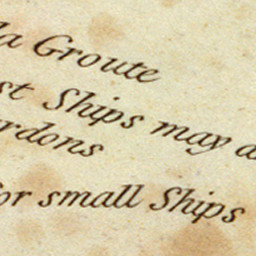 la Groute
st Ships may a
rdons
for small Ships